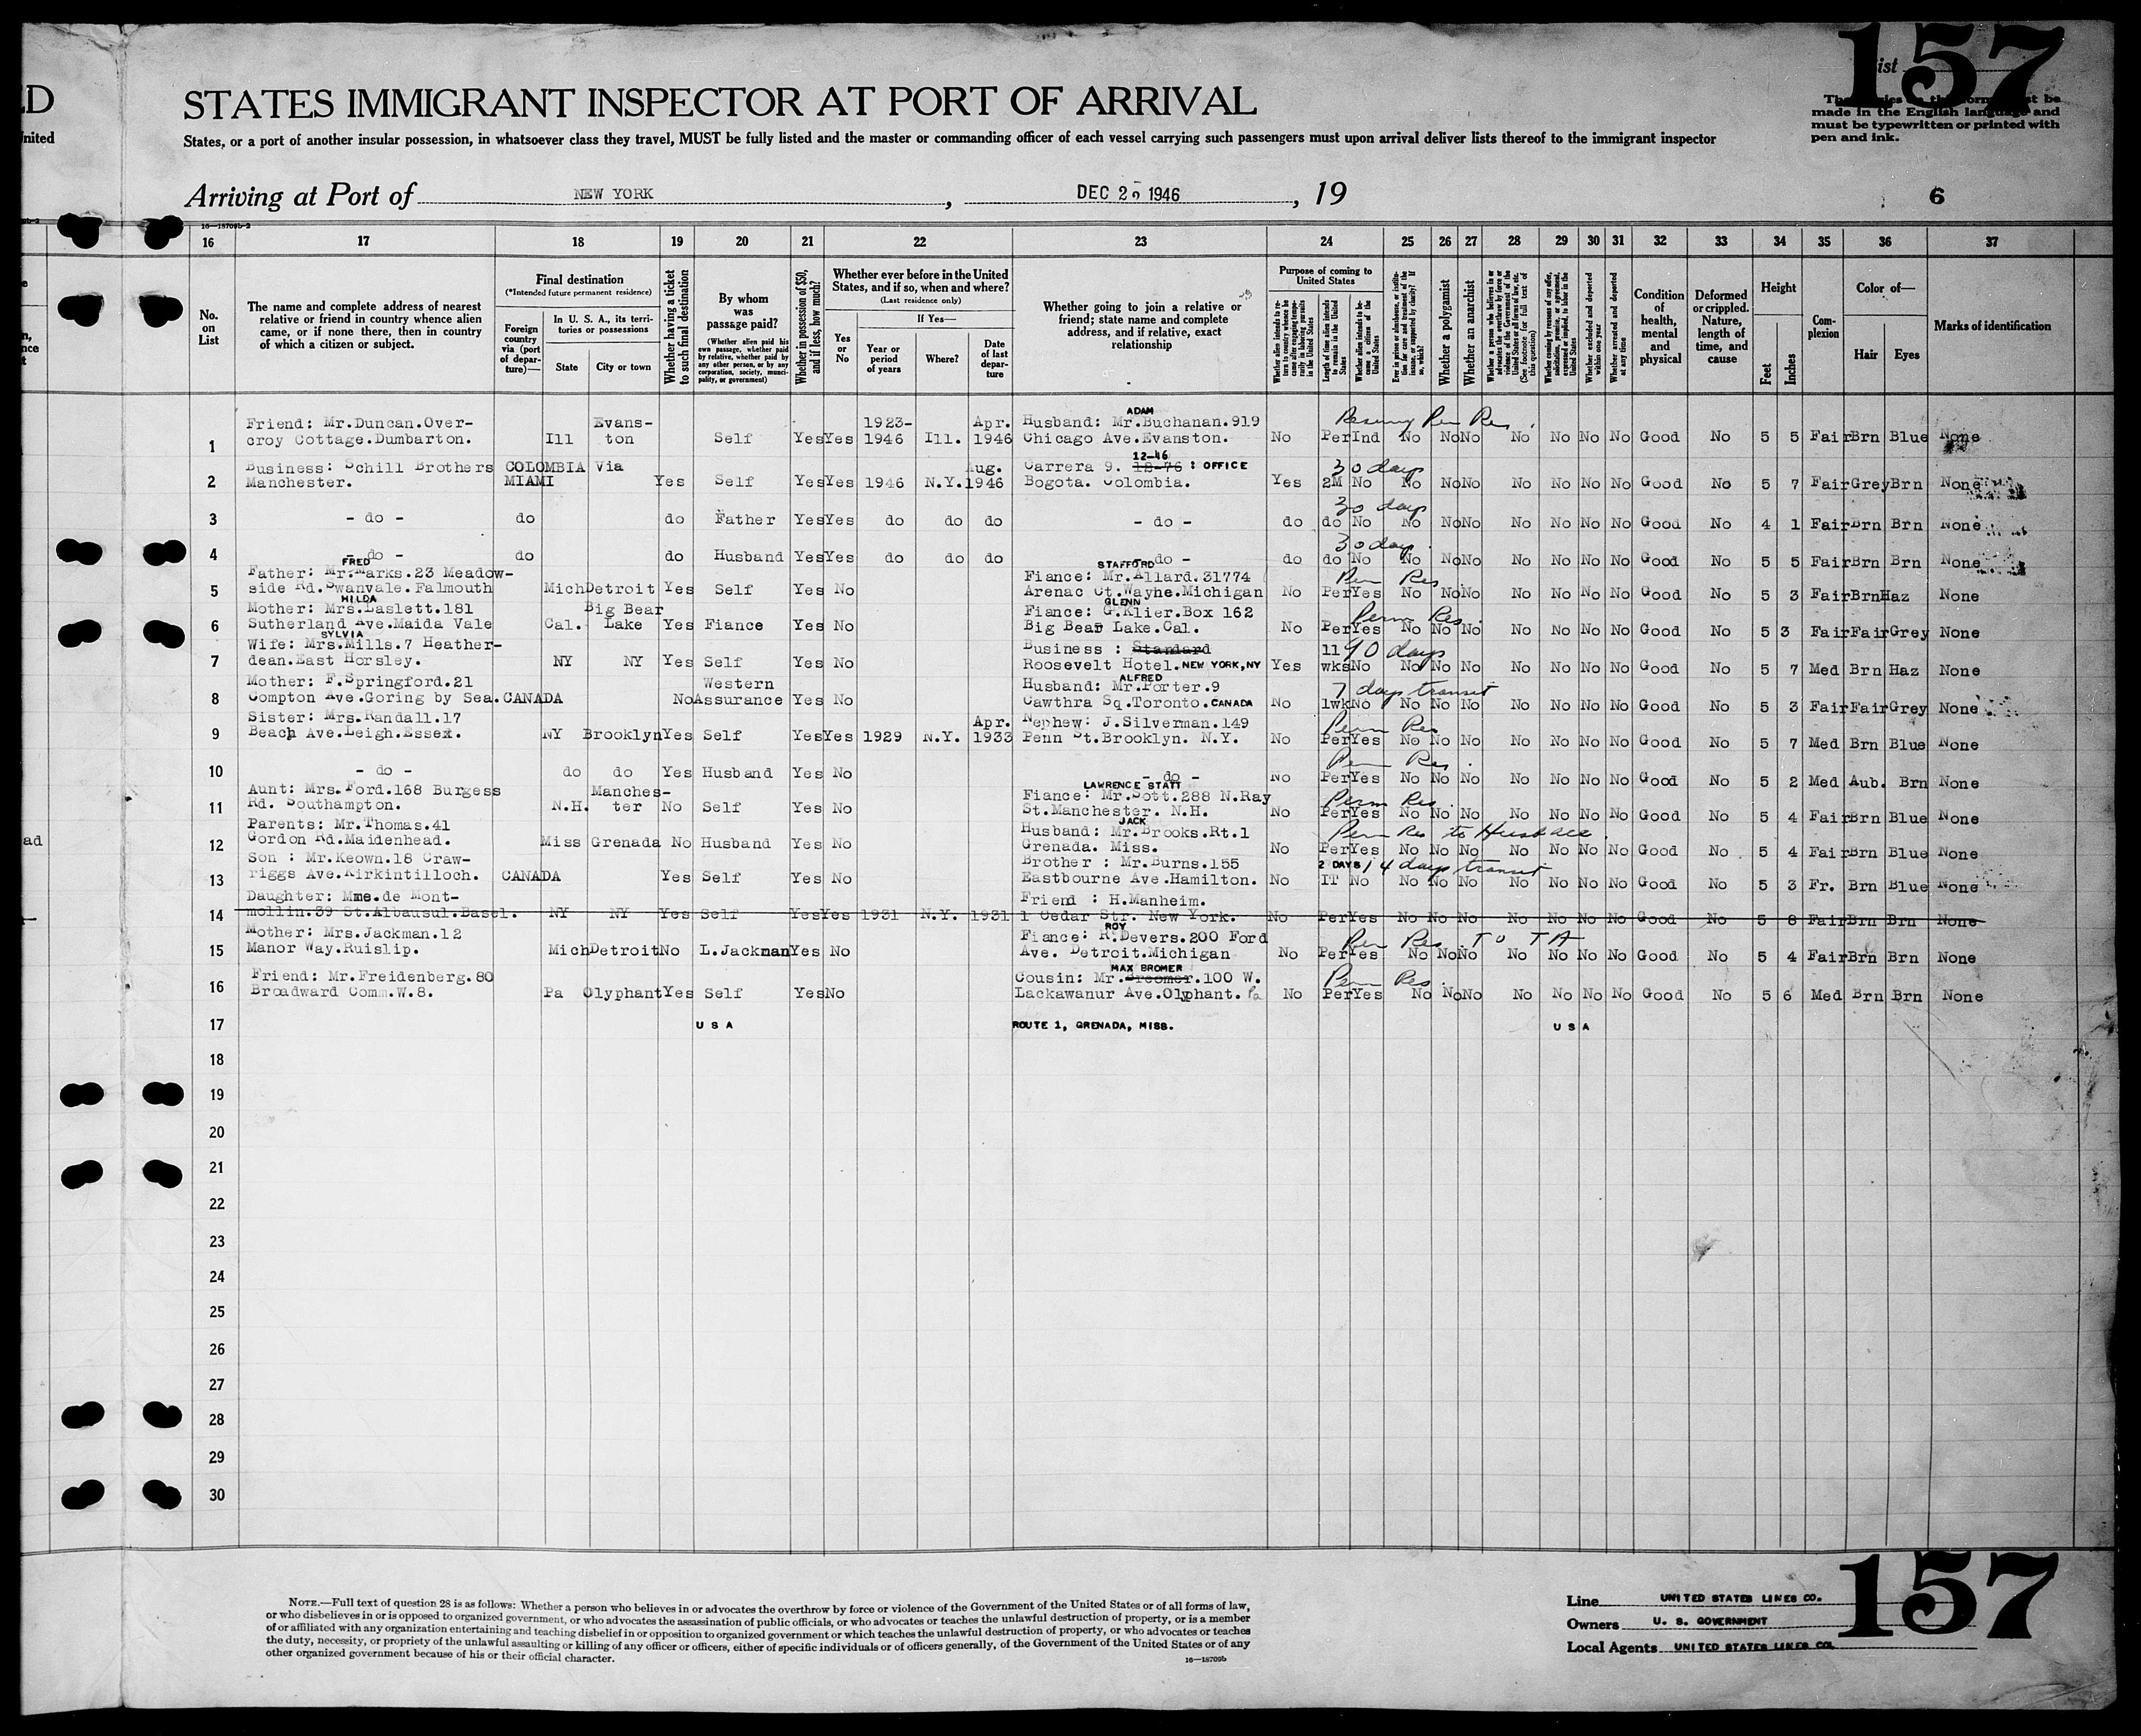 157
List
LD
STATES IMMIGRANT INSPECTOR AT PORT OF ARRIVAL
made in the English language and
must be typewritten or printed with
pen and ink.
United
States, or a port of another insular possession, in whatsoever class they travel, MUST be fully listed and the master or commanding officer of each vessel carrying such passengers must upon arrival deliver lists thereof to the immigrant inspector
Arriving at Port of NEW YORK, DEC 1946, 19
6
16—18709b-2
16 17 18 19 20 21 22 23 24 25 26 27 28 29 30 31 32 33 34 35 36 37
No. on List
The name and complete address of nearest relative or friend in country whence alien came, or if none there, then in country of which a citizen or subject.
Final destination
(*Intended future permanent residence)
Foreign country via (port of departure)—
In U. S. A., its territories or possessions
State
City or town
Whether having a ticket to such final destination
By whom was passage paid?
(Whether alien paid his own passage, whether paid by relative, whether paid by any other person, or by any corporation, society, municipality, or government)
Whether in possession of $50, and if less, how much?
Whether ever before in the United States, and if so, when and where?
(Last residence only)
Yes or No
If Yes—
Year or period of years
Where?
Date of last departure
Whether going to join a relative or friend; state name and complete address, and if relative, exact relationship
Purpose of coming to United States
Whether alien intends to return to country whence he came after engaging temporarily in laboring pursuits in the United States
Length of time alien intends to remain in the United States
Whether alien intends to become a citizen of the United States
Ever in prison or almshouse, or institution for care and treatment of the insane, or supported by charity? If so, which?
Whether a polygamist
Whether an anarchist
Whether a person who believes in or advocates the overthrow by force or violence of the Government of the United States or all forms of law, etc. (See footnote for full text of this question)
Whether coming by reason of any offer, solicitation, promise, or agreement, expressed or implied, to labor in the United States
Whether excluded and deported within one year
Whether arrested and deported at any time
Condition of health, mental and physical
Deformed or crippled. Nature, length of time, and cause
Height
Feet
Inches
Complexion
Color of—
Hair
Eyes
Marks of identification
ADAM Resuming Per Res.
Friend: Mr.Duncan.Over- Evans- 1923- Apr. Husband: Mr.Buchanan.919
1 croy Cottage.Dumbarton. Ill ton Self Yes Yes 1946 Ill. 1946 Chicago Ave.Evanston. No Per Ind No No No No No No No Good No 5 5 Fair Brn Blue None
12-46 30 days
Business: Schill Brothers COLOMBIA Via Aug. Carrera 9. 12-76 : OFFICE
2 Manchester. MIAMI Yes Self Yes Yes 1946 N.Y. 1946 Bogota. Colombia. Yes 2M No No No No No No No No Good No 5 7 Fair Grey Brn None
30 days
3 - do - do do Father Yes Yes do do do - do - do do No No No No No No No No Good No 4 1 Fair Brn Brn None
30 days
4 - do - do do Husband Yes Yes do do do - do - do do No No No No No No No No Good No 5 5 Fair Brn Brn None
FRED STAFFORD Perm Res
Father: Mr.Marks.23 Meadow- Fiance: Mr.Allard.31774
5 side Rd.Swanvale.Falmouth Mich Detroit Yes Self Yes No Arenac Ct.Wayne.Michigan No Per Yes No No No No No No No Good No 5 3 Fair Brn Haz None
HILDA GLENN Perm Res.
Mother: Mrs.Laslett.181 Big Bear Fiance: G.Klier.Box 162
6 Sutherland Ave.Maida Vale Cal. Lake Yes Fiance Yes No Big Bear Lake.Cal. No Per Yes No No No No No No No Good No 5 3 Fair Fair Grey None
SYLVIA
Wife: Mrs.Mills.7 Heather- Business : Standard 11 90 days
7 dean.East Horsley. NY NY Yes Self Yes No Roosevelt Hotel.NEW YORK,NY Yes wks No No No No No No No No Good No 5 7 Med Brn Haz None
ALFRED 7 days transit
Mother: F.Springford.21 Western Husband: Mr.Porter.9
8 Compton Ave.Goring by Sea. CANADA No Assurance Yes No Cawthra Sq.Toronto.CANADA No 1wk No No No No No No No No Good No 5 3 Fair Fair Grey None
Sister: Mrs.Randall.17 Apr. Nephew: J.Silverman.149 Perm Res
9 Beach Ave.Leigh.Essex. NY Brooklyn Yes Self Yes Yes 1929 N.Y. 1933 Penn St.Brooklyn. N.Y. No Per Yes No No No No No No No Good No 5 7 Med Brn Blue None
Perm Res.
10 - do - do do Yes Husband Yes No - do - No Per Yes No No No No No No No Good No 5 2 Med Aub. Brn None
LAWRENCE STATT Perm Res.
Aunt: Mrs.Ford.168 Burgess Manches- Fiance: Mr.Sott.288 N.Ray
11 Rd. Southampton. N.H. ter No Self Yes No St.Manchester. N.H. No Per Yes No No No No No No No Good No 5 4 Fair Brn Blue None
JACK Perm Res to Husband.
Parents: Mr.Thomas.41 Husband: Mr.Brooks.Rt.1
12 Gordon Rd.Maidenhead. Miss Grenada No Husband Yes No Grenada. Miss. No Per Yes No No No No No No No Good No 5 4 Fair Brn Blue None
Son : Mr.Keown.18 Craw- Brother : Mr.Burns.155 2 DAYS 14 days transit
13 riggs Ave.Kirkintilloch. CANADA Yes Self Yes No Eastbourne Ave.Hamilton. No IT No No No No No No No No Good No 5 3 Fr. Brn Blue None
Daughter: Mme.de Mont- Friend : H.Manheim.
14 mollin.39 St.Albausul.Basel. NY NY Yes Self Yes Yes 1931 N.Y. 1931 1 Cedar Str. New York. No Per Yes No No No No No No No Good No 5 8 Fair Brn Brn None
ROY Per Res TO TA
Mother: Mrs.Jackman.12 Fiance: R.Devers.200 Ford
15 Manor Way.Ruislip. Mich Detroit No L.Jackman Yes No Ave. Detroit.Michigan No Per Yes No No No No No No No Good No 5 4 Fair Brn Brn None
MAX BROMER Perm Res.
Friend: Mr.Freidenberg.80 Cousin: Mr.Broomer.100 W.
16 Broadward Comm.W.8. Pa Olyphant Yes Self Yes No Lackawanur Ave.Olyphant. Pa No Per Yes No No No No No No No Good No 5 6 Med Brn Brn None
17 U S A ROUTE 1, GRENADA, MISS. U S A
18
19
20
21
22
23
24
25
26
27
28
29
30
NOTE.—Full text of question 28 is as follows: Whether a person who believes in or advocates the overthrow by force or violence of the Government of the United States or of all forms of law,
or who disbelieves in or is opposed to organized government, or who advocates the assassination of public officials, or who advocates or teaches the unlawful destruction of property, or is a member
of or affiliated with any organization entertaining and teaching disbelief in or opposition to organized government or which teaches the unlawful destruction of property, or who advocates or teaches
the duty, necessity, or propriety of the unlawful assaulting or killing of any officer or officers, either of specific individuals or of officers generally, of the Government of the United States or of any
other organized government because of his or their official character.
16—18709b
Line UNITED STATES LINES CO.
Owners U. S. GOVERNMENT
Local Agents UNITED STATES LINES CO.
157